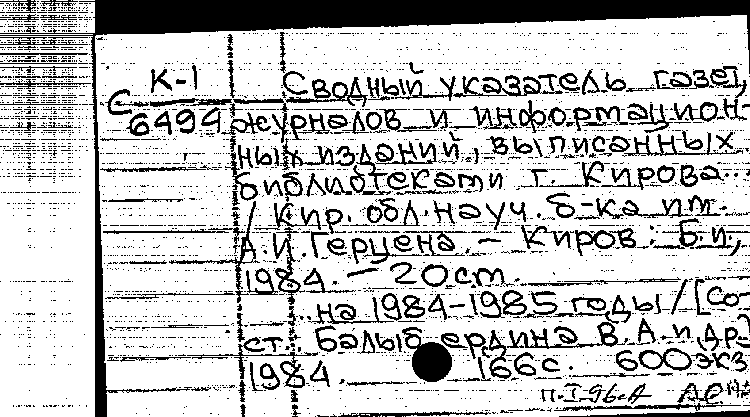 К-1
С 6494
Сводный указатель газет,
журналов и информацион-
ных изданий, выписанных
библиотеками г. Кирова...
/ Кир. обл. науч. б-ка им.
А.И. Герцена. – Киров: Б.и.,
1984. – 20 см.
...на 1984-1985 годы / [Со-
ст.: Балыбердина В.А. и др.]
1984. 166 с. 600 экз
п.I-96.А